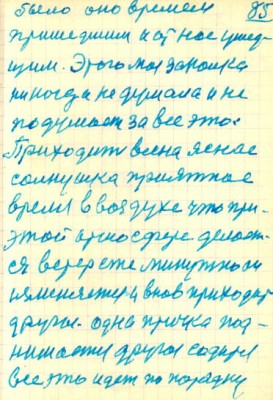 было оно времем 85
пришедшим и от нас ушед-
щим. Этого моя законка
никогда не думала и не
подумает за все это.
Приходит весна ясное
солнушка приятное
время в воздухе что при-
этой атмосфере делает-
ся
минутно он
изменяется и вновь приходит
другое. одна птичка под-
нимается другое
все это идет по порядку